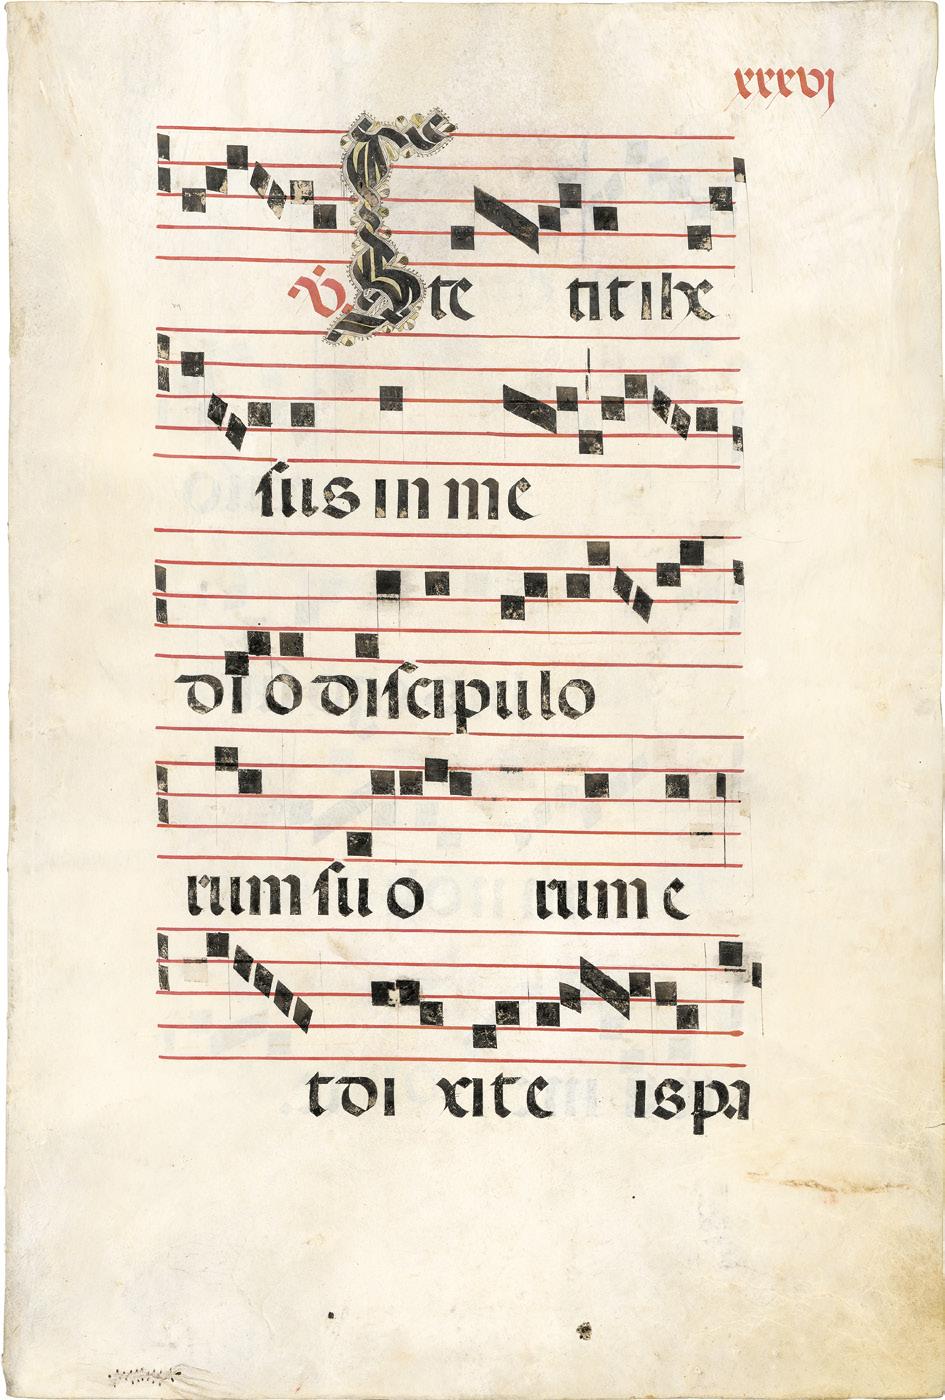 xxxvj
v̇. Ste tit ihe
sus in me
dio discipulo
rum suo rum e
t di xit e is pa